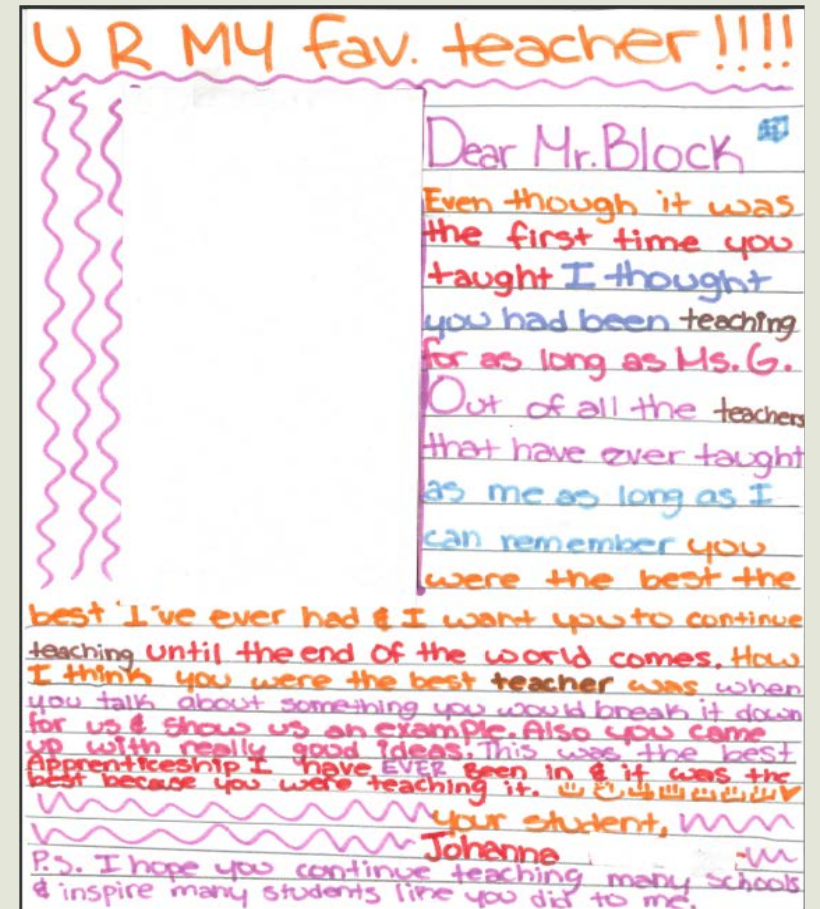 U R MY fav. teacher!!!!
Dear Mr. Block
Even though it was
the first time you
taught I thought
you had been teaching
for as long as Ms. G.
Out of all the teachers
that have ever taught
as me as long as I
can remember you
were the best the
best I've ever had & I want you to continue
teaching until the end of the world comes. How
I think you were the best teacher was when
you talk about something you would break it down
for us & show us an example. Also you came
up with really good ideas. This was the best
Apprenticeship I have EVER been in & it was the
best because you were teaching it.
your student,
Johanna
P.S. I hope you continue teaching many schools
& inspire many students like you did to me.